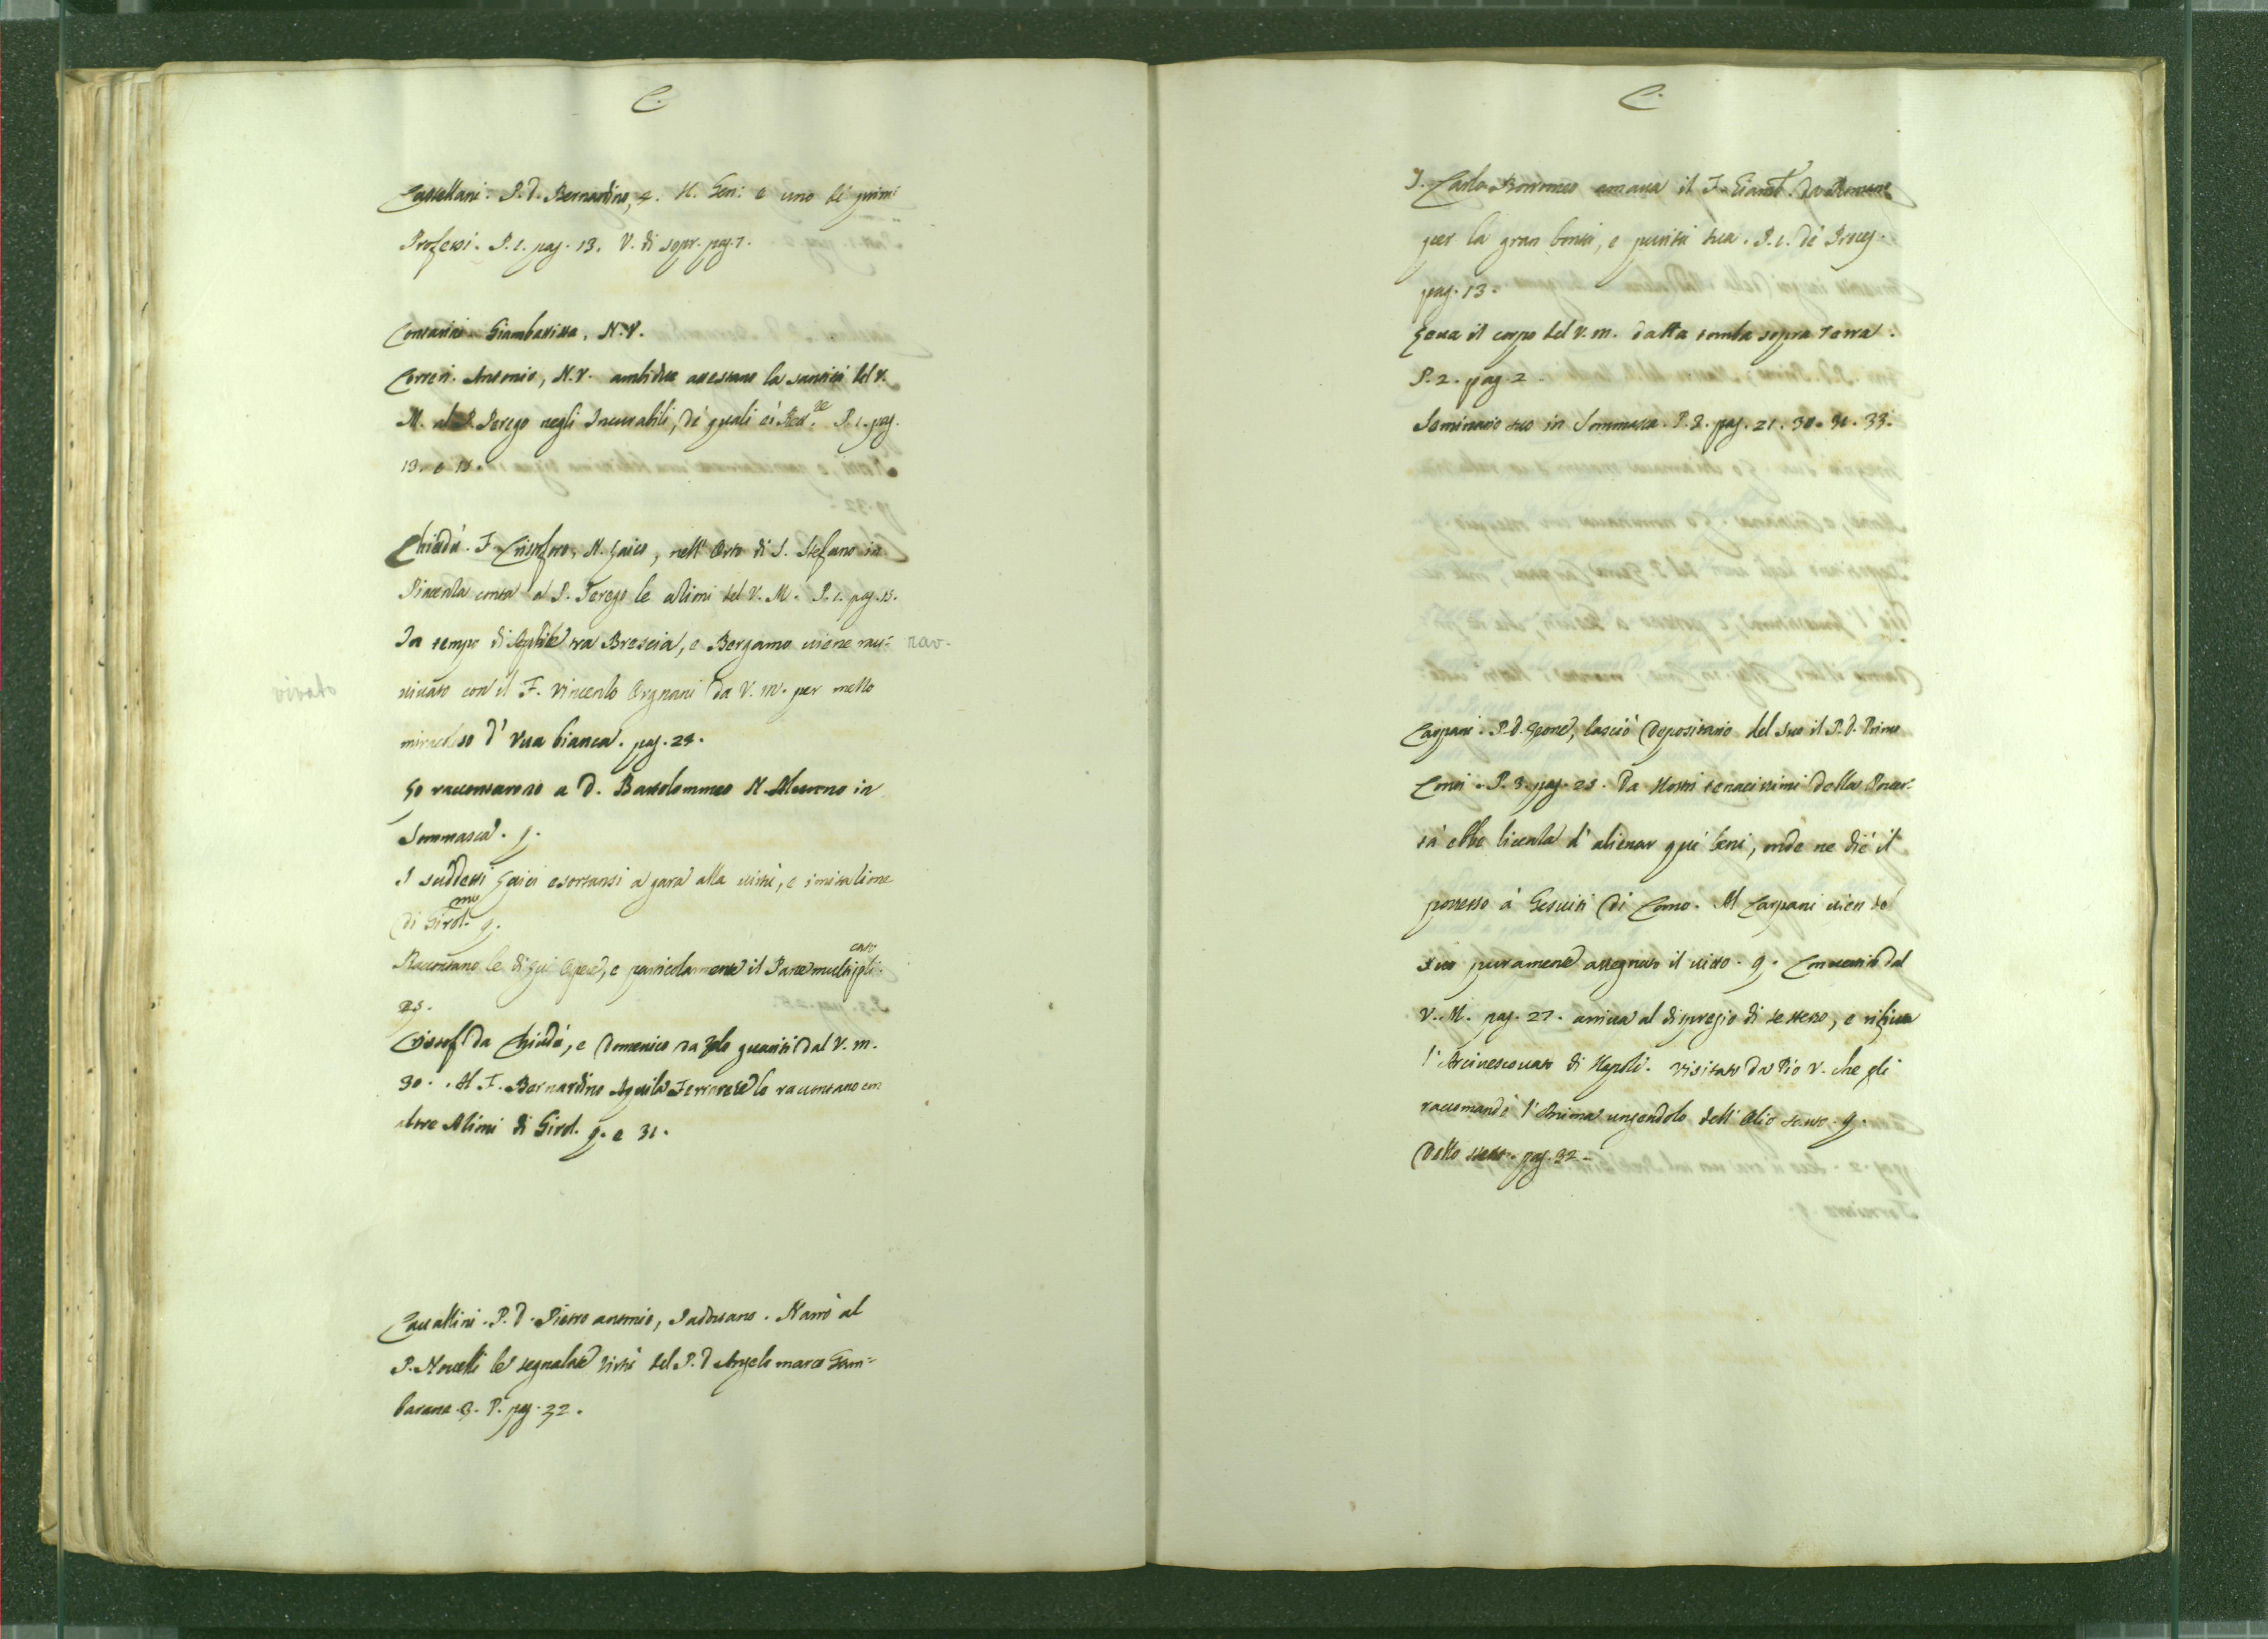 C.
Castellani. P. D. Bernardino, 4. N. Gen: e uno de primi
Professi. P. 1. pag. 13. V. di sopr. pag. 7.
Contarini. Giambatista, N. V.
Correri. Antonio, N. V. ambidue attestano la santità del V.
M. al P. Terego negli Incurabili, de' quali P. 1. pag.
13. e 15.
Chiodà. F. Cristoforo, N. Laico, nell' Orto di S. Stefano in
Piacenza conta al P. Terego le azioni del V. M. P. 1. pag. 15.
In tempo di tra Brescia, e Bergamo viene rav: rav-
vivato con il F. Vincenzo Orgnani da V. M. per mezzo
miracoloso d' Vua bianca. pag. 24.
Lo raccontarono a D. Bartolommeo N. Alunno in
Sommasca. q.
I suddetti Laici esortansi a gara alla virtù, e imitazione
di Girol.mo q.
Raccontano le di qui Opere, e particolarmente il Pane multipli-cato
25.
Cristof. da Chiodà, e Domenico da guariti dal V. M.
30. Al F. Bernardino Aquila Ferrarese lo raccontano con
altre Azioni di Girol. q. e 31.
Cavallini. P. D. Pietro antonio, Padovano. Narrò al
P. Novelli le segnalate virtù del P. D. Angelo marco Gam-
barana. 3. P. pag. 32.
C.
S. Carlo Borromeo amava il F. Giamb.
per la gran bontà, e purità sua. P. 1. de' Proces.
pag. 13.
Leva il corpo del V. M. dalla tomba sopra Terra.
P. 2. pag. 2.
Seminario suo in Sommasca. P. 2. pag. 21. 30. 31. 33.
Carpani. P. D. Leone, lasciò depositario del suo il P. D. Primo
Conti. P. 3. pag. 25. Da Nostri tenacissimi della Pover-
tà ebbe licenza d' alienar que' beni, onde ne diè il
possesso a' Gesuiti di Como. Al Carpani vien
suo puramente assegnato il vitto. q. Convertito dal
V. M. pag. 27. arriva al dispregio di se stesso, e rifiuta
l' Arcivescovato di Napoli. Visitato da Pio V. che gli
raccomandò l' Anima ungendolo dell' Olio santo. q.
Dello stesso. pag. 32.